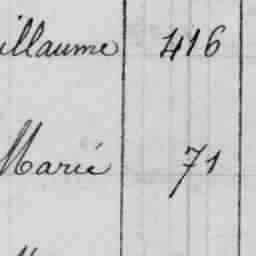 illaume 416
Marie 71